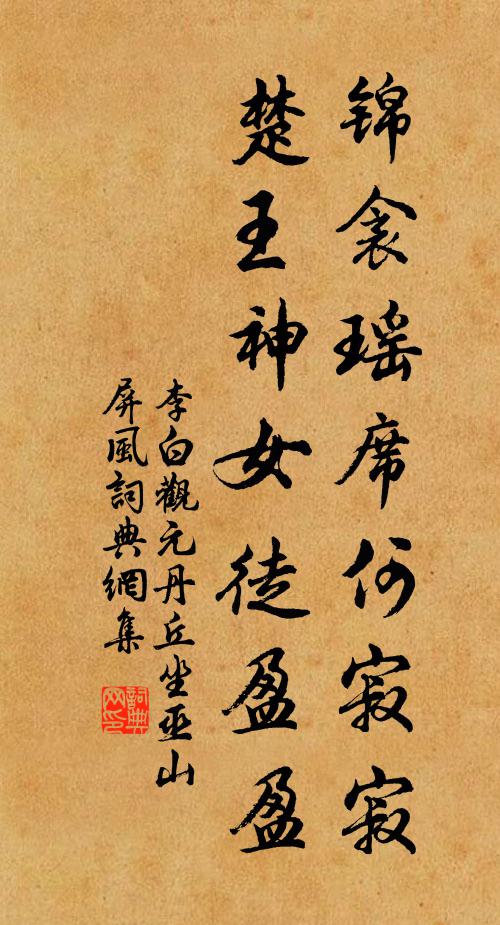 锦衾瑶席何寂寂
楚王神女徒盈盈
李白觀元丹丘坐巫山
屏風詞典網集
詞典网印